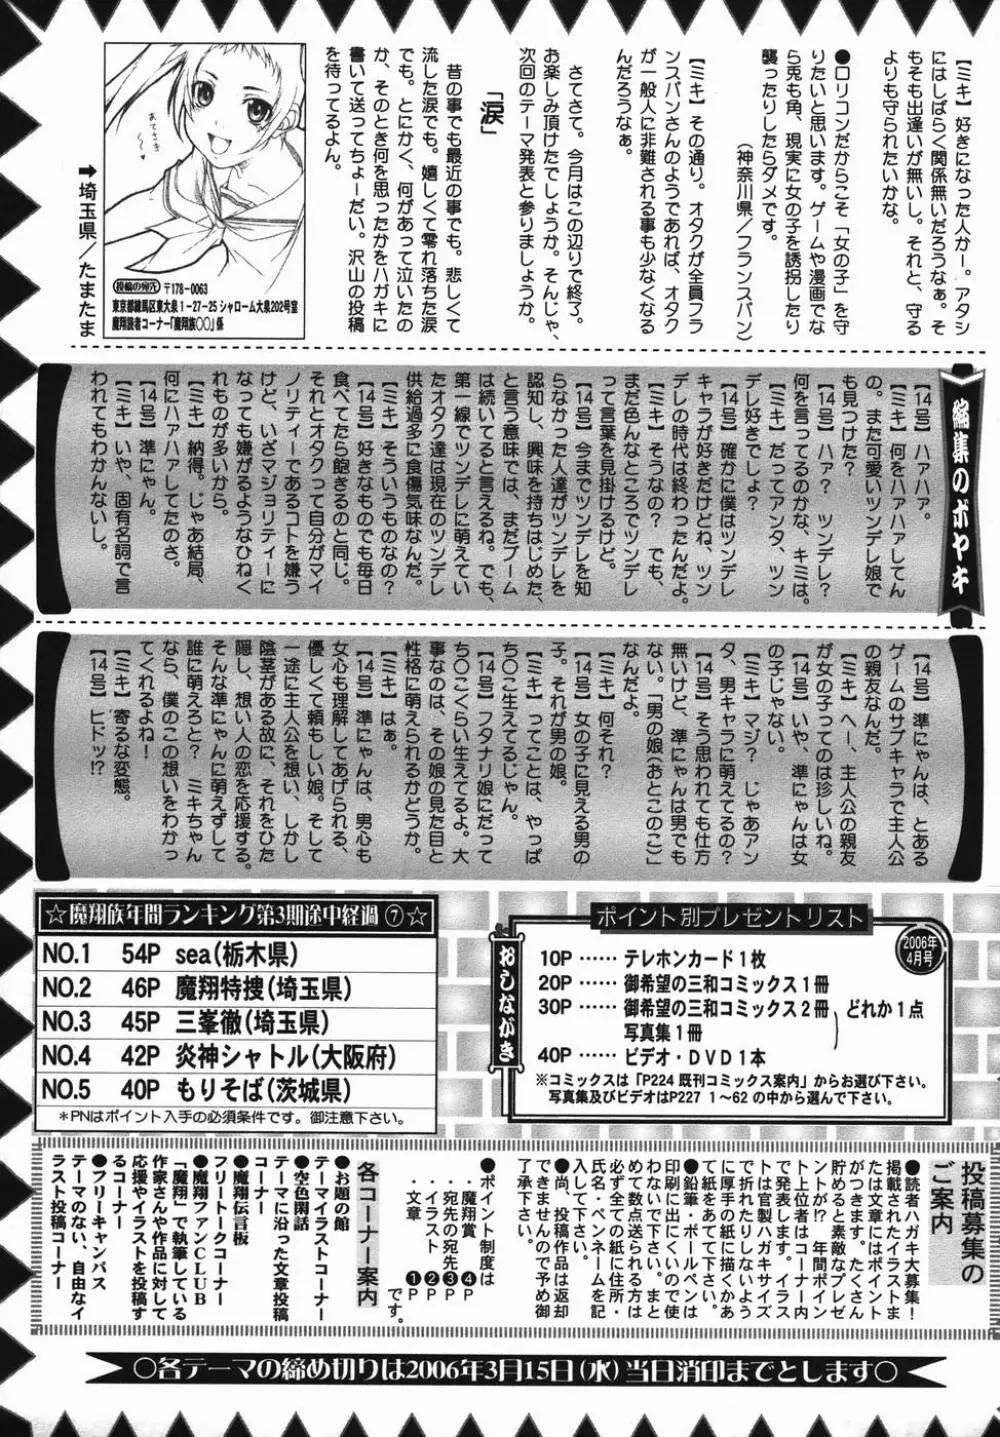 【ミキ】好きになった人かー。アタシ
にはしばらく関係無いだろうなぁ。そ
もそも出逢いが無いし。それと、守る
よりも守られたいかな。
●ロリコンだからこそ「女の子」を守
りたいと思います。ゲームや漫画でな
ら兎も角、現実に女の子を誘拐したり
襲ったりしたらダメです。
（神奈川県／フランスパン）
【ミキ】その通り。オタクが全員フラ
ンスパンさんのようであれば、オタク
が一般人に非難される事も少なくなる
んだろうなぁ。
さてさて。今月はこの辺りで終了。
お楽しみ頂けたでしょうか。そんじゃ、
次回のテーマ発表と参りましょうか。
「涙」
昔の事でも最近の事でも。悲しくて
流した涙でも。嬉しくて零れ落ちた涙
でも。とにかく、何があって泣いたの
か、そのとき何を思ったかをハガキに
書いて送ってちょーだい。沢山の投稿
を待ってるよん。
あてさき
投稿の宛先 〒178-0063
東京都練馬区東大泉1-27-25 シャローム大泉202号室
魔翔読者コーナー「魔翔族○○」係
➡埼玉県／たまたま
編集のボヤキ
【14号】ハァハァ。
【ミキ】何をハァハァしてん
の。また可愛いツンデレ娘で
も見つけた？
【14号】ハァ？　ツンデレ？
何を言ってるのかな、キミは。
【ミキ】だってアンタ、ツン
デレ好きでしょ？
【14号】確かに僕はツンデレ
キャラが好きだけどね、ツン
デレの時代は終わったんだよ。
【ミキ】そうなの？　でも、
まだ色んなところでツンデレ
って言葉を見掛けるけど。
【14号】今までツンデレを知
らなかった人達がツンデレを
認知し、興味を持ちはじめた、
と言う意味では、まだブーム
は続いてると言えるね。でも、
第一線でツンデレに萌えてい
たオタク達は現在のツンデレ
供給過多に食傷気味なんだ。
【ミキ】そういうものなの？
【14号】好きなものでも毎日
食べてたら飽きるのと同じ。
それとオタクって自分がマイ
ノリティーであるコトを嫌う
けど、いざマジョリティーに
なっても嫌がるようなひねく
れものが多いから。
【ミキ】納得。じゃあ結局、
何にハァハァしてたのさ。
【14号】準にゃん。
【ミキ】いや、固有名詞で言
われてもわかんないし。
【14号】準にゃんは、とある
ゲームのサブキャラで主人公
の親友なんだ。
【ミキ】へー、主人公の親友
が女の子ってのは珍しいね。
【14号】いや、準にゃんは女
の子じゃない。
【ミキ】マジ？　じゃあアン
タ、男キャラに萌えてるの？
【14号】そう思われても仕方
無いけど、準にゃんは男でも
ない。「男の娘（おとこのこ）」
なんだよ。
【ミキ】何それ？
【14号】女の子に見える男の
子。それが男の娘。
【ミキ】ってことは、やっぱ
ち○こ生えてるじゃん。
【14号】フタナリ娘にだって
ち○こくらい生えてるよ。大
事なのは、その娘の見た目と
性格に萌えられるかどうか。
【ミキ】はぁ。
【14号】準にゃんは、男心も
女心も理解してあげられる、
優しくて頼もしい娘。そして
一途に主人公を想い、しかし
陰茎がある故に、それをひた
隠し、想い人の恋を応援する。
そんな準にゃんに萌えずして
誰に萌えろと？　ミキちゃん
なら、僕のこの想いをわかっ
てくれるよね！
【ミキ】寄るな変態。
【14号】ヒドッ!?
☆魔翔族年間ランキング第3期途中経過⑦☆
NO.1　54P　sea（栃木県）
NO.2　46P　魔翔特捜（埼玉県）
NO.3　45P　三峯徹（埼玉県）
NO.4　42P　炎神シャトル（大阪府）
NO.5　40P　もりそば（茨城県）
＊PNはポイント入手の必須条件です。御注意下さい。
ポイント別プレゼントリスト
2006年4月号
おしながき
10P ……　テレホンカード1枚
20P ……　御希望の三和コミックス1冊
30P ……　御希望の三和コミックス2冊　どれか1点
写真集1冊
40P ……　ビデオ・DVD1本
※コミックスは「P224 既刊コミックス案内」からお選び下さい。
写真集及びビデオはP227　1～62の中から選んで下さい。
投稿募集の
ご案内
●読者ハガキ大募集！
掲載されたイラストま
たは文章にはポイント
がつきます。たくさん
貯めると素敵なプレゼ
ントが!?　年間ポイン
ト上位者はコーナー内
で発表します。イラス
トは官製ハガキサイズ
で折れたりしないよう
に厚手の紙に描くかあ
て紙をあてて下さい。
●鉛筆・ボールペンは
印刷に出にくいので使
わないで下さい。また
まとめて数点送られる方は
必ず全ての紙に住所・
氏名・ペンネームを記
入して下さい。
●尚、投稿作品は返却
できませんので予め御
了承下さい。
●ポイント制度は
・魔翔賞　❹P
・宛先の宛先　❸P
・イラスト　❷P
・文章　❶P
です。
各コーナー案内
●お題の館
テーマイラストコーナー
●空色閑話
テーマに沿った文章投稿
コーナー
●魔翔伝言板
フリートークコーナー
●魔翔ファンCLUB
「魔翔」で執筆している
作家さんや作品に対して
応援やイラストを投稿す
るコーナー
●フリーキャンバス
テーマのない、自由なイ
ラスト投稿コーナー
○各テーマの締め切りは2006年3月15日（水）当日消印までとします○